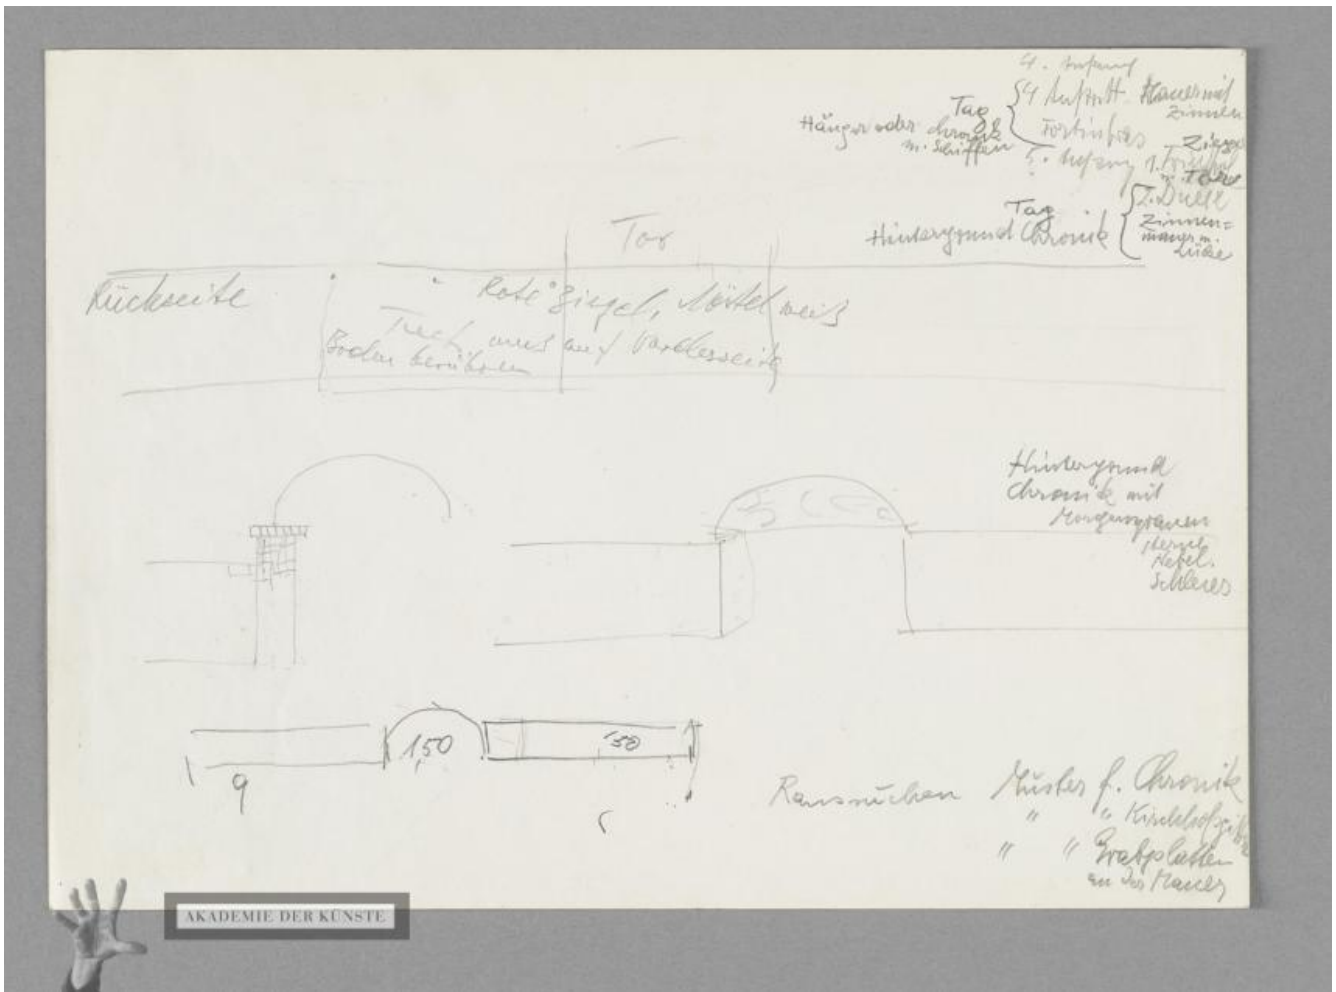 4. Aufzug
Tag
4 Auftritt. Mauer mit
Zinnen
Hänger oder Chronik
m. Schiffen
Fortinbras
5. Aufzug 1.
m. Tor
Tag
Hintergrund Chronik
2. Duell
Zinnen=
mauer m.
Lücke
Tor
Rückseite
Rote Ziegel, Mörtel weiß
muß auf Vorderseite
Boden berühren
Hintergrund
Chronik mit
Morgengrauen
Nebel.
Schleier
1,50
50
9
Raussuchen Muster f. Chronik
" " Kirchhofgitter
" " Grabplatten
an der Mauer
AKADEMIE DER KÜNSTE